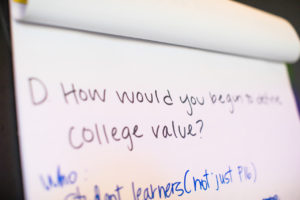 D How would you begin to define
college value?
Who:
student learners (not just P16)